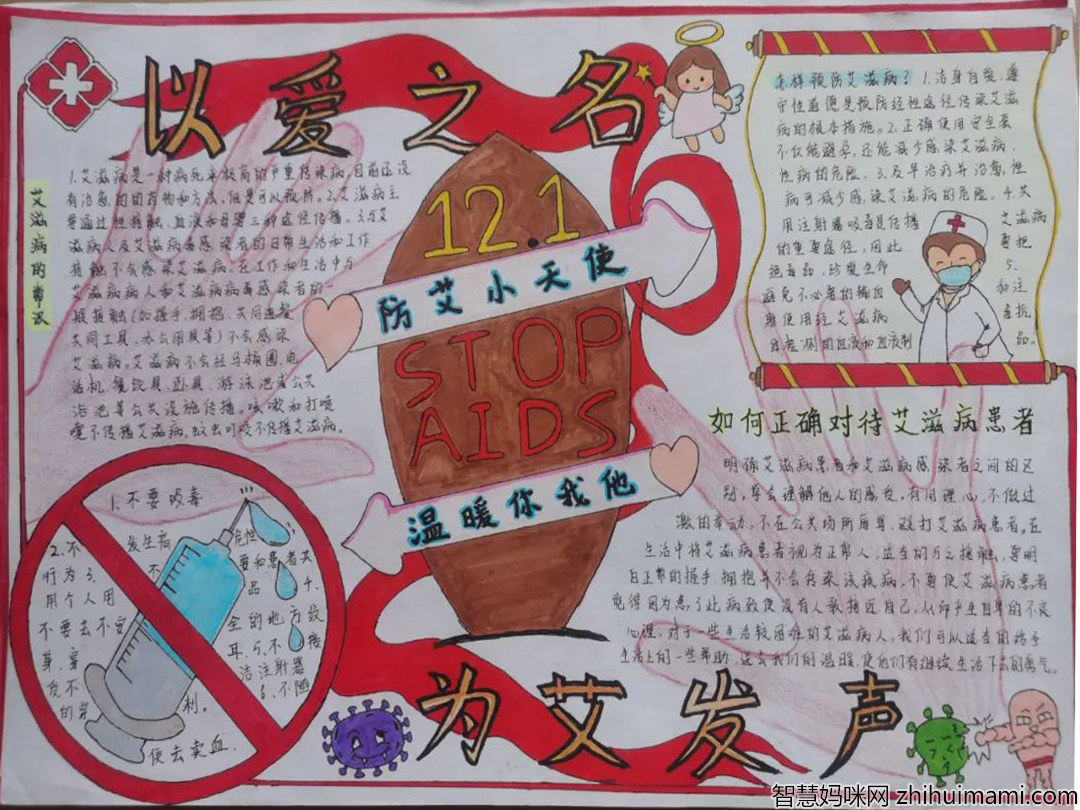 以爱之名
12.1
防艾小天使
STOP
AIDS
温暖你我他
为艾发声
艾滋病的常识
1.艾滋病是一种病死率极高的严重传染病,目前还没
有治愈的的药物和方法,但是可以预防。2.艾滋病主
要通过性接触、血液和母婴三种途径传播。3.与艾
滋病人及艾滋病毒感染者的日常生活和工作
接触不会感染艾滋病,在工作和生活中与
艾滋病病人和艾滋病病毒感染者的一
般接触(如握手、拥抱、共同进餐
共同工具、办公用具等)不会感染
艾滋病。艾滋病不会经马桶圈、电
话机、餐饮具、卧具、游泳池或公共
浴池等公共设施传播。咳嗽和打喷
嚏不传播艾滋病,蚊虫叮咬不传播艾滋病。
怎样预防艾滋病?1.洁身自爱、遵
守性道德是预防经性途径传染艾滋
病的根本措施。2.正确使用安全套
不仅能避孕,还能减少感染艾滋病、
性病的危险。3.及早治疗并治愈性
病可减少感染艾滋病的危险。4.共
用注射器吸毒是传播艾滋病
的重要途径,因此要拒
绝毒品,珍爱生命5、
避免不必要的输血和注
射使用经艾滋病毒抗
体检测的血液和血液制品。
如何正确对待艾滋病患者
明确艾滋病患者和艾滋病感染者之间的区
别,学会理解他人的感受,有同理心,不做过
激的举动,不在公共场所辱骂、殴打艾滋病患者。在
生活中将艾滋病患者视为正常人,适当的与之接触,要明
白正常的握手、拥抱并不会传染该疾病,不要使艾滋病患者
觉得因为患了此病致使没有人敢接近自己,从而产生自卑的不良
心理。对于一些生活较困难的艾滋病人,我们可以适当的给予
生活上的一些帮助,送去我们的温暖,使他们有继续生活下去的勇气。
1.不要吸毒
2.不发生高危性
行为3、不要和患者共
用个人用品4、
不要去不安全的地方纹
身、穿耳、5、不接
受不洁注射器
的穿刺。6、不随
便去卖血.
智慧妈咪网 zhihuimami.com